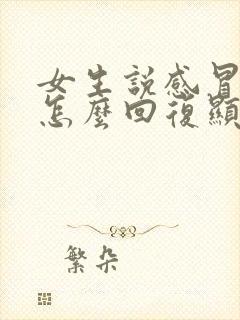 女生説感冒
怎麼回復顯
繁朵